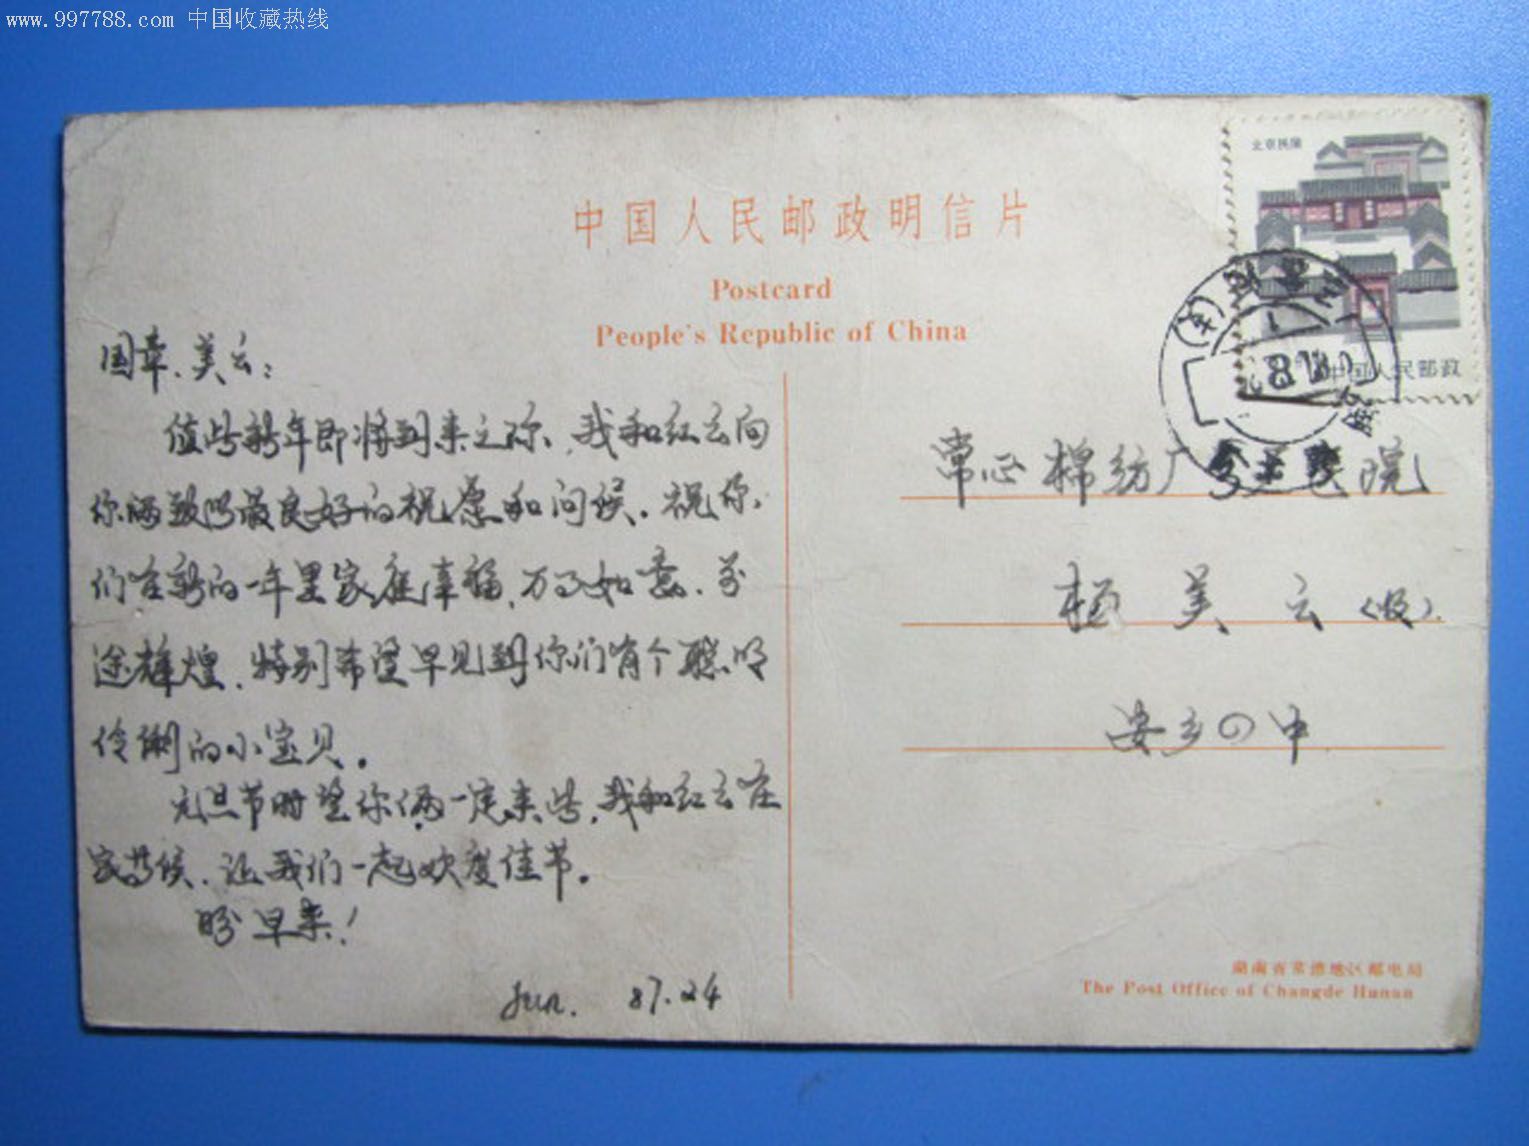 www.997788.com 中国收藏热线
北京民居
中国人民邮政明信片
Postcard
People's Republic of China
中国人民邮政
国章、美云：
值此新年即将到来之际、我和红云向
你俩致以最良好的祝愿和问候。祝你
们在新的一年里家庭幸福、万事如意、前
途辉煌、特别希望早见到你们有个聪明
伶俐的小宝贝。
元旦节时望你俩一定来此，我和红云在
家恭候、让我们一起欢度佳节。
盼早来！
Jun. 87.24
棉纺厂 医院
美云（收）
安乡四中
湖南省常德地区邮电局
The Post Office of Changde Hunan